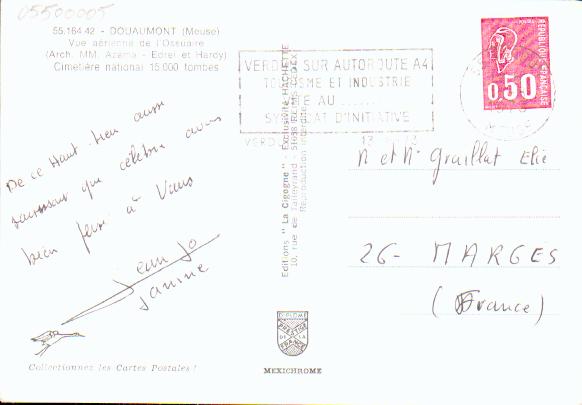 05500005
55.164.42 - DOUAUMONT (Meuse)
Vue aérienne de l'Ossuaire
(Arch. MM. Azema - Edrei et Hardy)
Cimetière national 15.000 tombes
De ce Haut-lieu aussi
que célèbre avons
bien pensé à Vous
Jean Jo
Janine
Collectionnez les Cartes Postales !
Editions "La Cigogne" - Exclusivité HACHETTE
10, rue de Talleyrand - 51038 REIMS CEDEX
Reproduction interdite
DIPLOME
PRESTIGE
DE LA
FRANCE
MEXICHROME
VERDUN SUR AUTOROUTE A4
TOURISME ET INDUSTRIE
SYNDICAT D'INITIATIVE
VERDUN
REPUBLIQUE FRANÇAISE
0,50
MEUSE
M et Me Graillat Elie
26 - MARGES
(France)